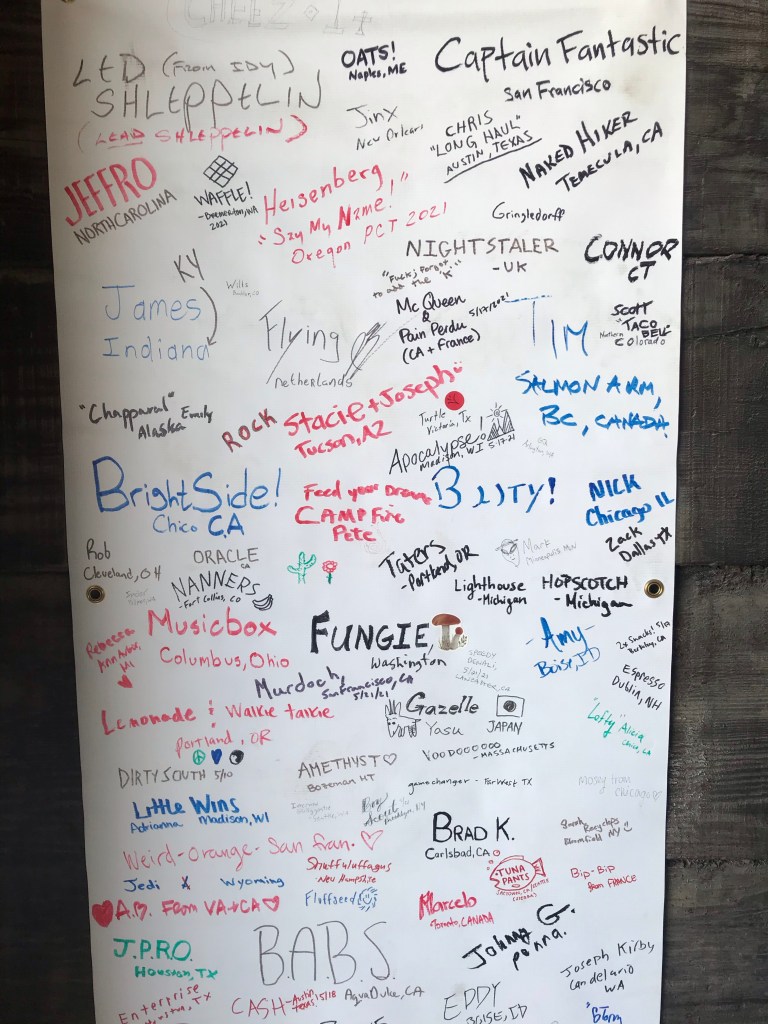 CHEEZ • It
LED (From IDY)
SHLEPPELIN
(LEAD SHLEPPELIN)
OATS!
Naples, ME
Captain Fantastic
San Francisco
Jinx
New Orleans
CHRIS
"LONG HAUL"
AUSTIN, TEXAS
NAKED HIKER
TEMECULA, CA
JEFFRO
NORTH CAROLINA
WAFFLE!
Bremerton, WA
2021
Heisenberg,
"Say My Name."
Oregon PCT 2021
Gringledorff
NIGHTSTALER
- UK
"Fuck, j forgot
to add the 'K'"
CONNOR
CT
KY
James
Indiana
Wills
Flying
netherlands
Mc Queen
&
Pain Perdu
(CA + France)
5/17/2021
TIM
SALMON ARM,
BC, CANADA
SCOTT
"TACO
BELL"
Northern Colorado
"Chapparal" Emily
Alaska
ROCK
Stacie + Joseph
Tucson, AZ
Turtle
Victoria, TX
Apocalypse!
Madison, WI 5-17-21
BrightSide!
Chico CA
Feed your Dreams
CAMPFire
Pete
BLITY!
NICK
Chicago IL
Zack
Dallas TX
Rob
Cleveland, OH
ORACLE
CA
NANNERS
- Fort Collins, CO
Taters
- Portland, OR
Mark
Minneapolis MN
Lighthouse
- Michigan
HOPSCOTCH
- Michigan
Rebecca
Ann Arbor,
MI
Musicbox
Columbus, Ohio
FUNGIE,
Washington
-Amy-
Boise, ID
2x Snacks! 5/19
Burbank, CA
SPEEDY
5/21/21
LANCASTER, CA
Espresso
Dublin, NH
Murdoch,
San Francisco, CA
5/21/21
Lemonade & Walkie talkie
Portland, OR
Gazelle
Yasu JAPAN
"Lefty" Alicia
Chico, CA
DIRTY SOUTH 5/10
AMETHYST
Bozeman MT
VOODOOOOOO
- MASSACHUSETTS
gamechanger - Far West TX
Mosey from
Chicago
Little Wins
Adrianna Madison, WI
Roy
Brooklyn, NY
BRAD K.
Carlsbad, CA
Sarah
Bloomfield NY
Weird-Orange-San Fran.
Shuffuluffagus
- New Hampshire
Jedi X Wyoming
Fluffseed
TUNA
PANTS
Bip-Bip
from FRANCE
A.B. From VA + CA
Marcelo
Toronto, CANADA
J.P.R.O.
Houston, TX
B.A.B.S.
Agua Dulce, CA
Johnny G.
penna.
Joseph Kirby
Candelario
WA
Enterprise
Houston, TX
CASH - Austin, Texas 5/18
EDDY
BOISE, ID